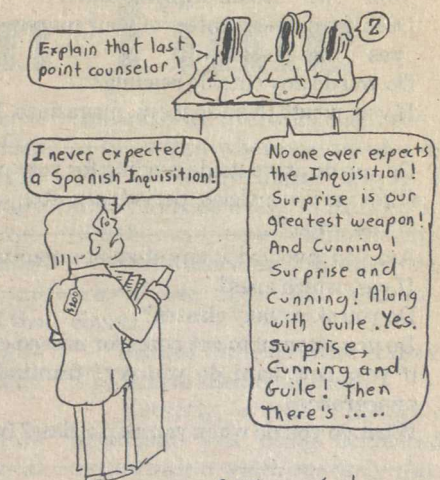 Explain that last
point counselor!
Z
I never expected
a Spanish Inquisition!
No one ever expects
the Inquisition!
Surprise is our
greatest weapon!
And Cunning!
Surprise and
Cunning! Along
with Guile. Yes.
Surprise,
Cunning and
Guile! Then
There's .....